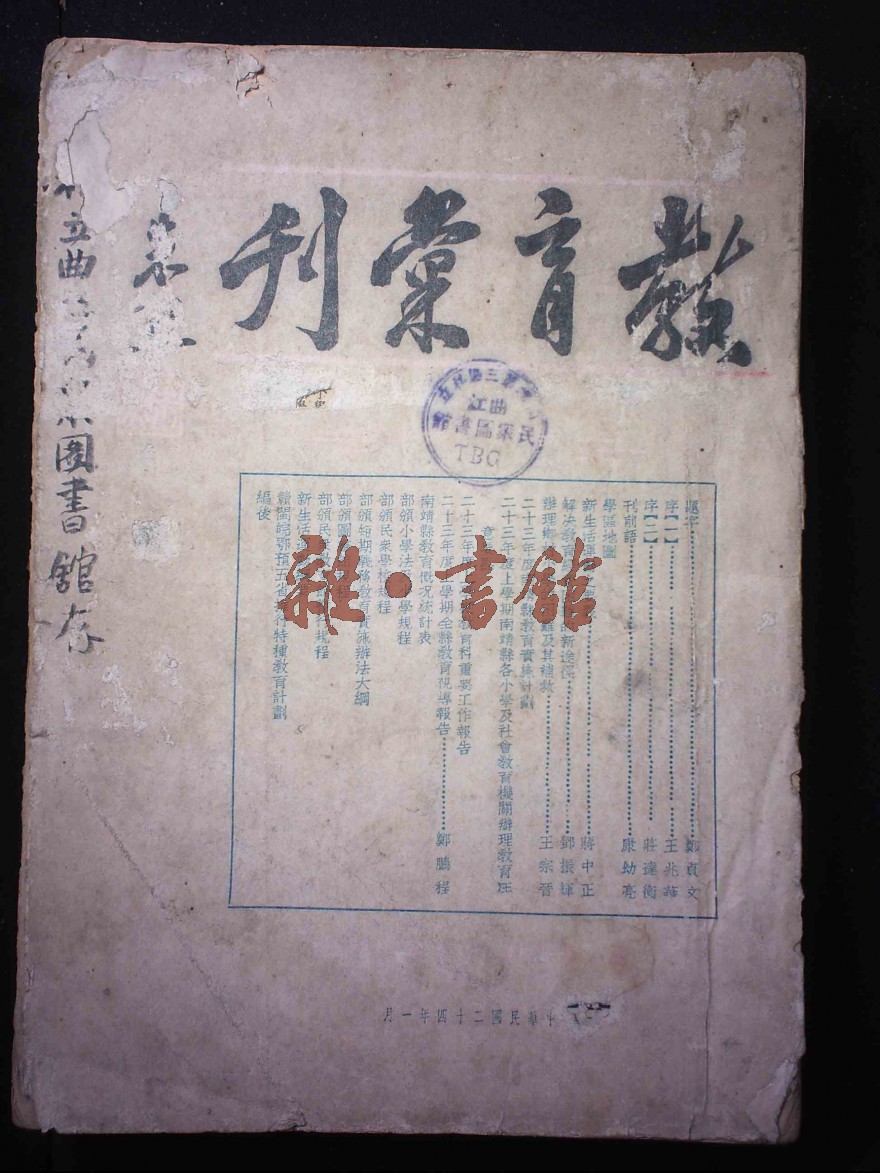 教育彙刊
立曲
圖書館存
曲江
民衆區書
TBG
雜·書館
題字 鄭貞文
序【一】 王兆華
序【二】 莊達衡
刊前語 康幼亮
學區地圖
新生活運動之要 蔣中正
解決教育 新途徑 鄧振輝
辦理鄉 難及其補救 王宗晉
二十三年度 縣教育實施計劃
二十三年度上學期南靖縣各小學及社會教育機關辦理教育注
意
二十三年度 教育科重要工作報告
二十三年度上學期全縣教育視導報告 鄭鵬程
南靖縣教育概况統計表
部頒小學法 學規程
部頒民衆學校規程
部頒短期義務教育實施辦法大綱
部頒圖 程
部頒民衆 行規程
新生活
贛閩皖鄂豫五省推行特種教育計劃
編後
中華民國二十四年一月